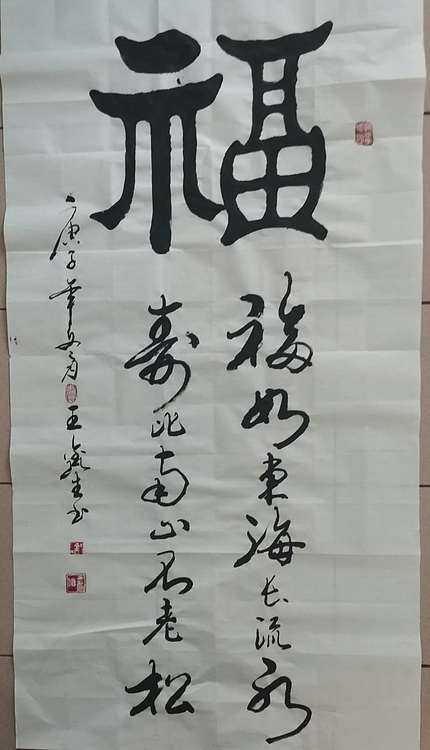 福
福如東海长流水
寿比南山不老松
庚子年
王
生书